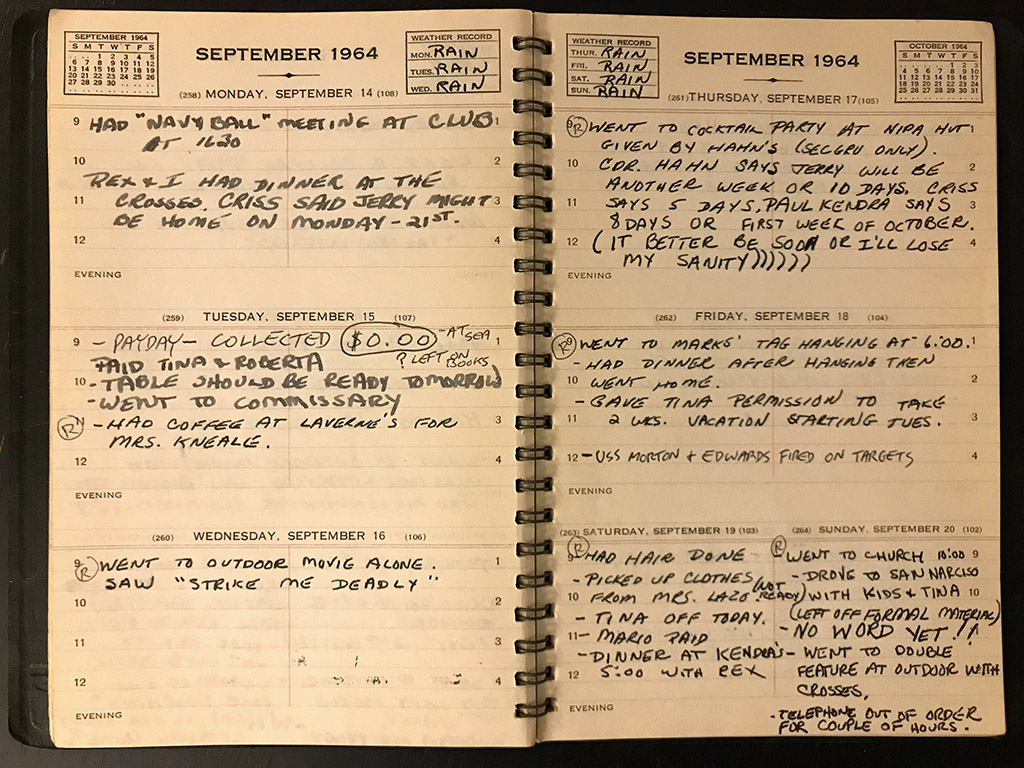 SEPTEMBER 1964
S M T W T F S
1 2 3 4 5
6 7 8 9 10 11 12
13 14 15 16 17 18 19
20 21 22 23 24 25 26
27 28 29 30
SEPTEMBER 1964
WEATHER RECORD
MON. RAIN
TUES. RAIN
WED. RAIN
(258) MONDAY, SEPTEMBER 14 (108)
9 HAD "NAVY BALL" MEETING AT CLUB 1
AT 1630
10 2
REX & I HAD DINNER AT THE
11 CROSSES. CRISS SAID JERRY MIGHT 3
BE HOME ON MONDAY - 21ST.
12 4
EVENING
(259) TUESDAY, SEPTEMBER 15 (107)
9 - PAYDAY - COLLECTED $0.00 - AT SEA 1
? LEFT ON BOOKS
PAID TINA & ROBERTA
10 - TABLE SHOULD BE READY TOMORROW
- WENT TO COMMISSARY
R - HAD COFFEE AT LAVERNE'S FOR 3
MRS. KNEALE.
12 4
EVENING
(260) WEDNESDAY, SEPTEMBER 16 (106)
9 R WENT TO OUTDOOR MOVIE ALONE. 1
SAW "STRIKE ME DEADLY"
10 2
11 3
12 4
EVENING
WEATHER RECORD
THUR. RAIN
FRI. RAIN
SAT. RAIN
SUN. RAIN
SEPTEMBER 1964
OCTOBER 1964
S M T W T F S
1 2 3
4 5 6 7 8 9 10
11 12 13 14 15 16 17
18 19 20 21 22 23 24
25 26 27 28 29 30 31
(261) THURSDAY, SEPTEMBER 17 (105)
9 R WENT TO COCKTAIL PARTY AT NIPA HUT 1
GIVEN BY HAHN'S (SECGRU ONLY).
10 CDR. HAHN SAYS JERRY WILL BE 2
ANOTHER WEEK OR 10 DAYS. CRISS
11 SAYS 5 DAYS, PAUL KENDRA SAYS 3
8 DAYS OR FIRST WEEK OF OCTOBER.
12 (IT BETTER BE SOON OR I'LL LOSE 4
MY SANITY))))))
EVENING
(262) FRIDAY, SEPTEMBER 18 (104)
9 R WENT TO MARKS' TAG HANGING AT 6:00. 1
- HAD DINNER AFTER HANGING THEN
10 WENT HOME. 2
- GAVE TINA PERMISSION TO TAKE
11 2 WKS. VACATION STARTING TUES. 3
12 - USS MORTON & EDWARDS FIRED ON TARGETS 4
EVENING
(263) SATURDAY, SEPTEMBER 19 (103)
9 R HAD HAIR DONE
- PICKED UP CLOTHES
10 FROM MRS. LAZO (NOT READY)
- TINA OFF TODAY.
11 - MARIO PAID
- DINNER AT KENDRA'S
12 5:00 WITH REX
EVENING
(264) SUNDAY, SEPTEMBER 20 (102)
R WENT TO CHURCH 10:00 9
- DROVE TO SAN NARCISO
WITH KIDS & TINA 10
(LEFT OFF FORMAL MATERIAL)
- NO WORD YET!!
- WENT TO DOUBLE
FEATURE AT OUTDOOR WITH
CROSSES.
- TELEPHONE OUT OF ORDER
FOR COUPLE OF HOURS.